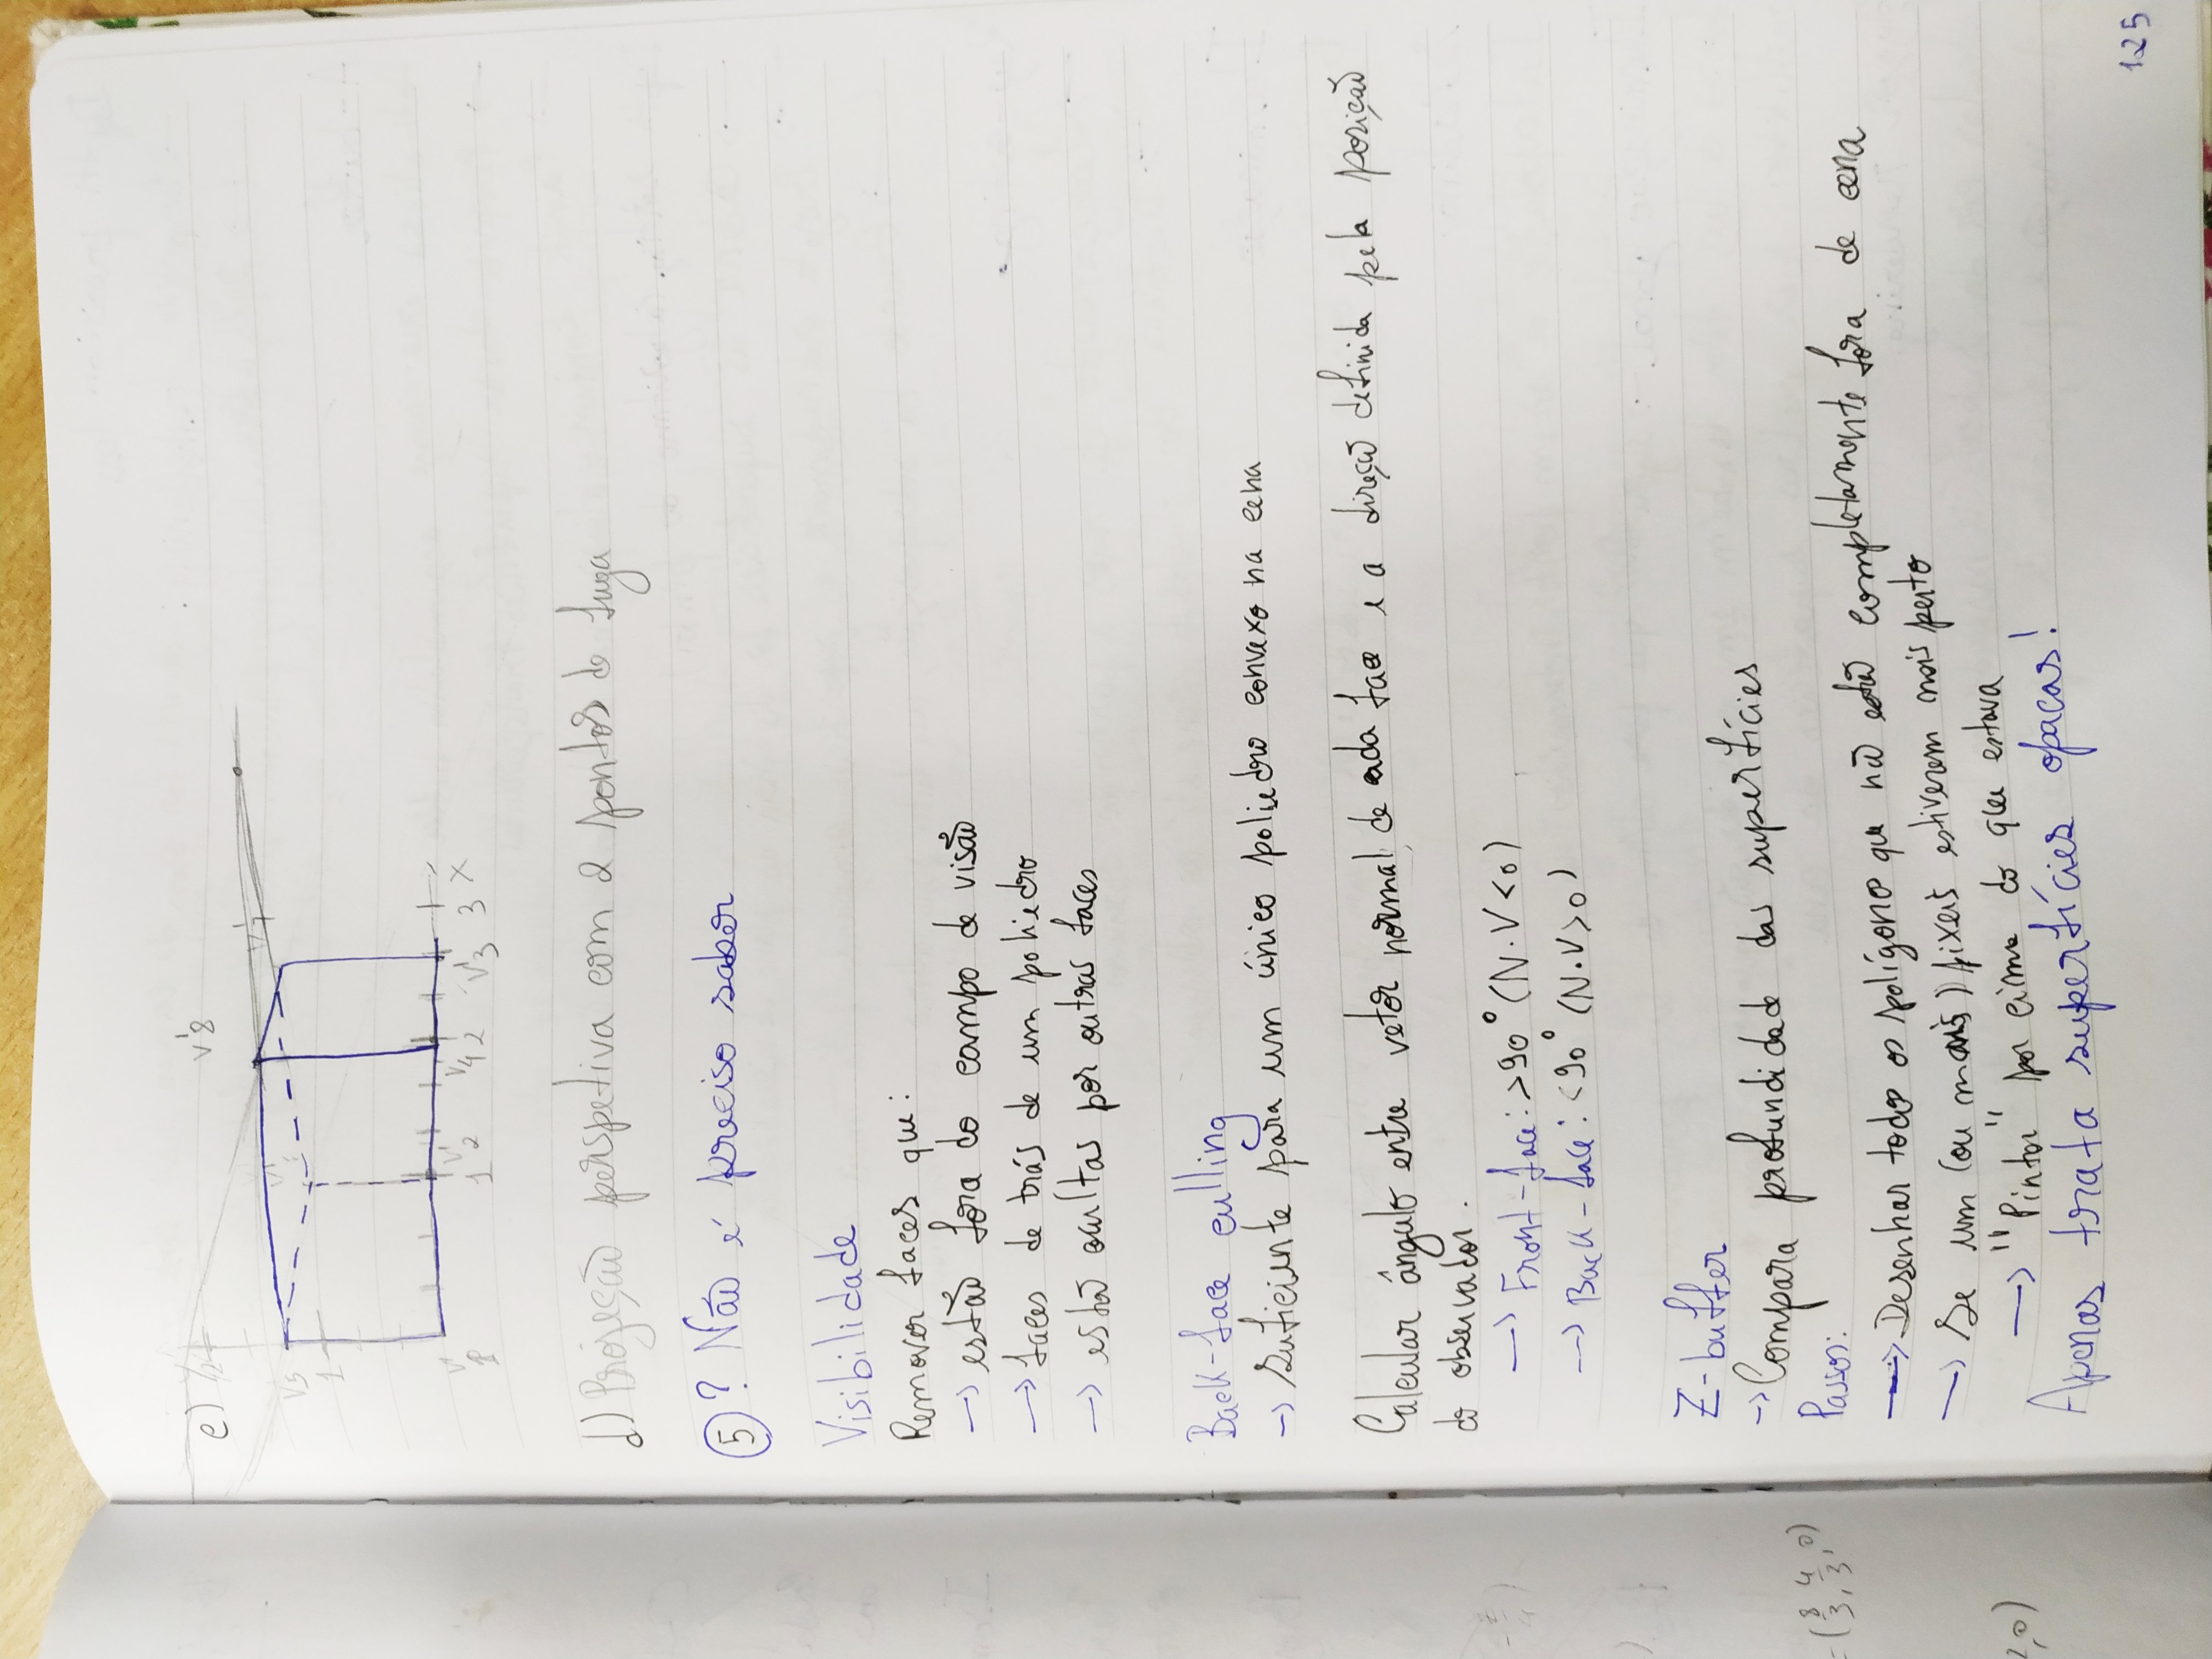 e) Y
2
V'8
V'7
V'5
1
V'1 1 V'2 V'4 2 V'3 3 X
d) Projeção perspetiva com 2 pontos de fuga
5 ? Não é preciso saber
Visibilidade
Remover faces que:
→ estão fora do campo de visão
→ faces de trás de um poliedro
→ estão ocultas por outras faces
Back-face culling
→ suficiente para um único poliedro convexo na cena
Calcular ângulo entre vetor normal de cada face e a direção definida pela posição
do observador.
→ Front-face: >90° (N.V<0)
→ Back-face: <90° (N.V>0)
Z-buffer
→ Compara profundidade das superfícies
Passos:
→ Desenhar todos os polígonos que não estão completamente fora de cena
→ Se um (ou mais) pixeis estiverem mais perto
→ "Pintar" por cima do que estava
Apenas trata superfícies opacas!
= (8/3, 4/3, 0)
2,0)
125